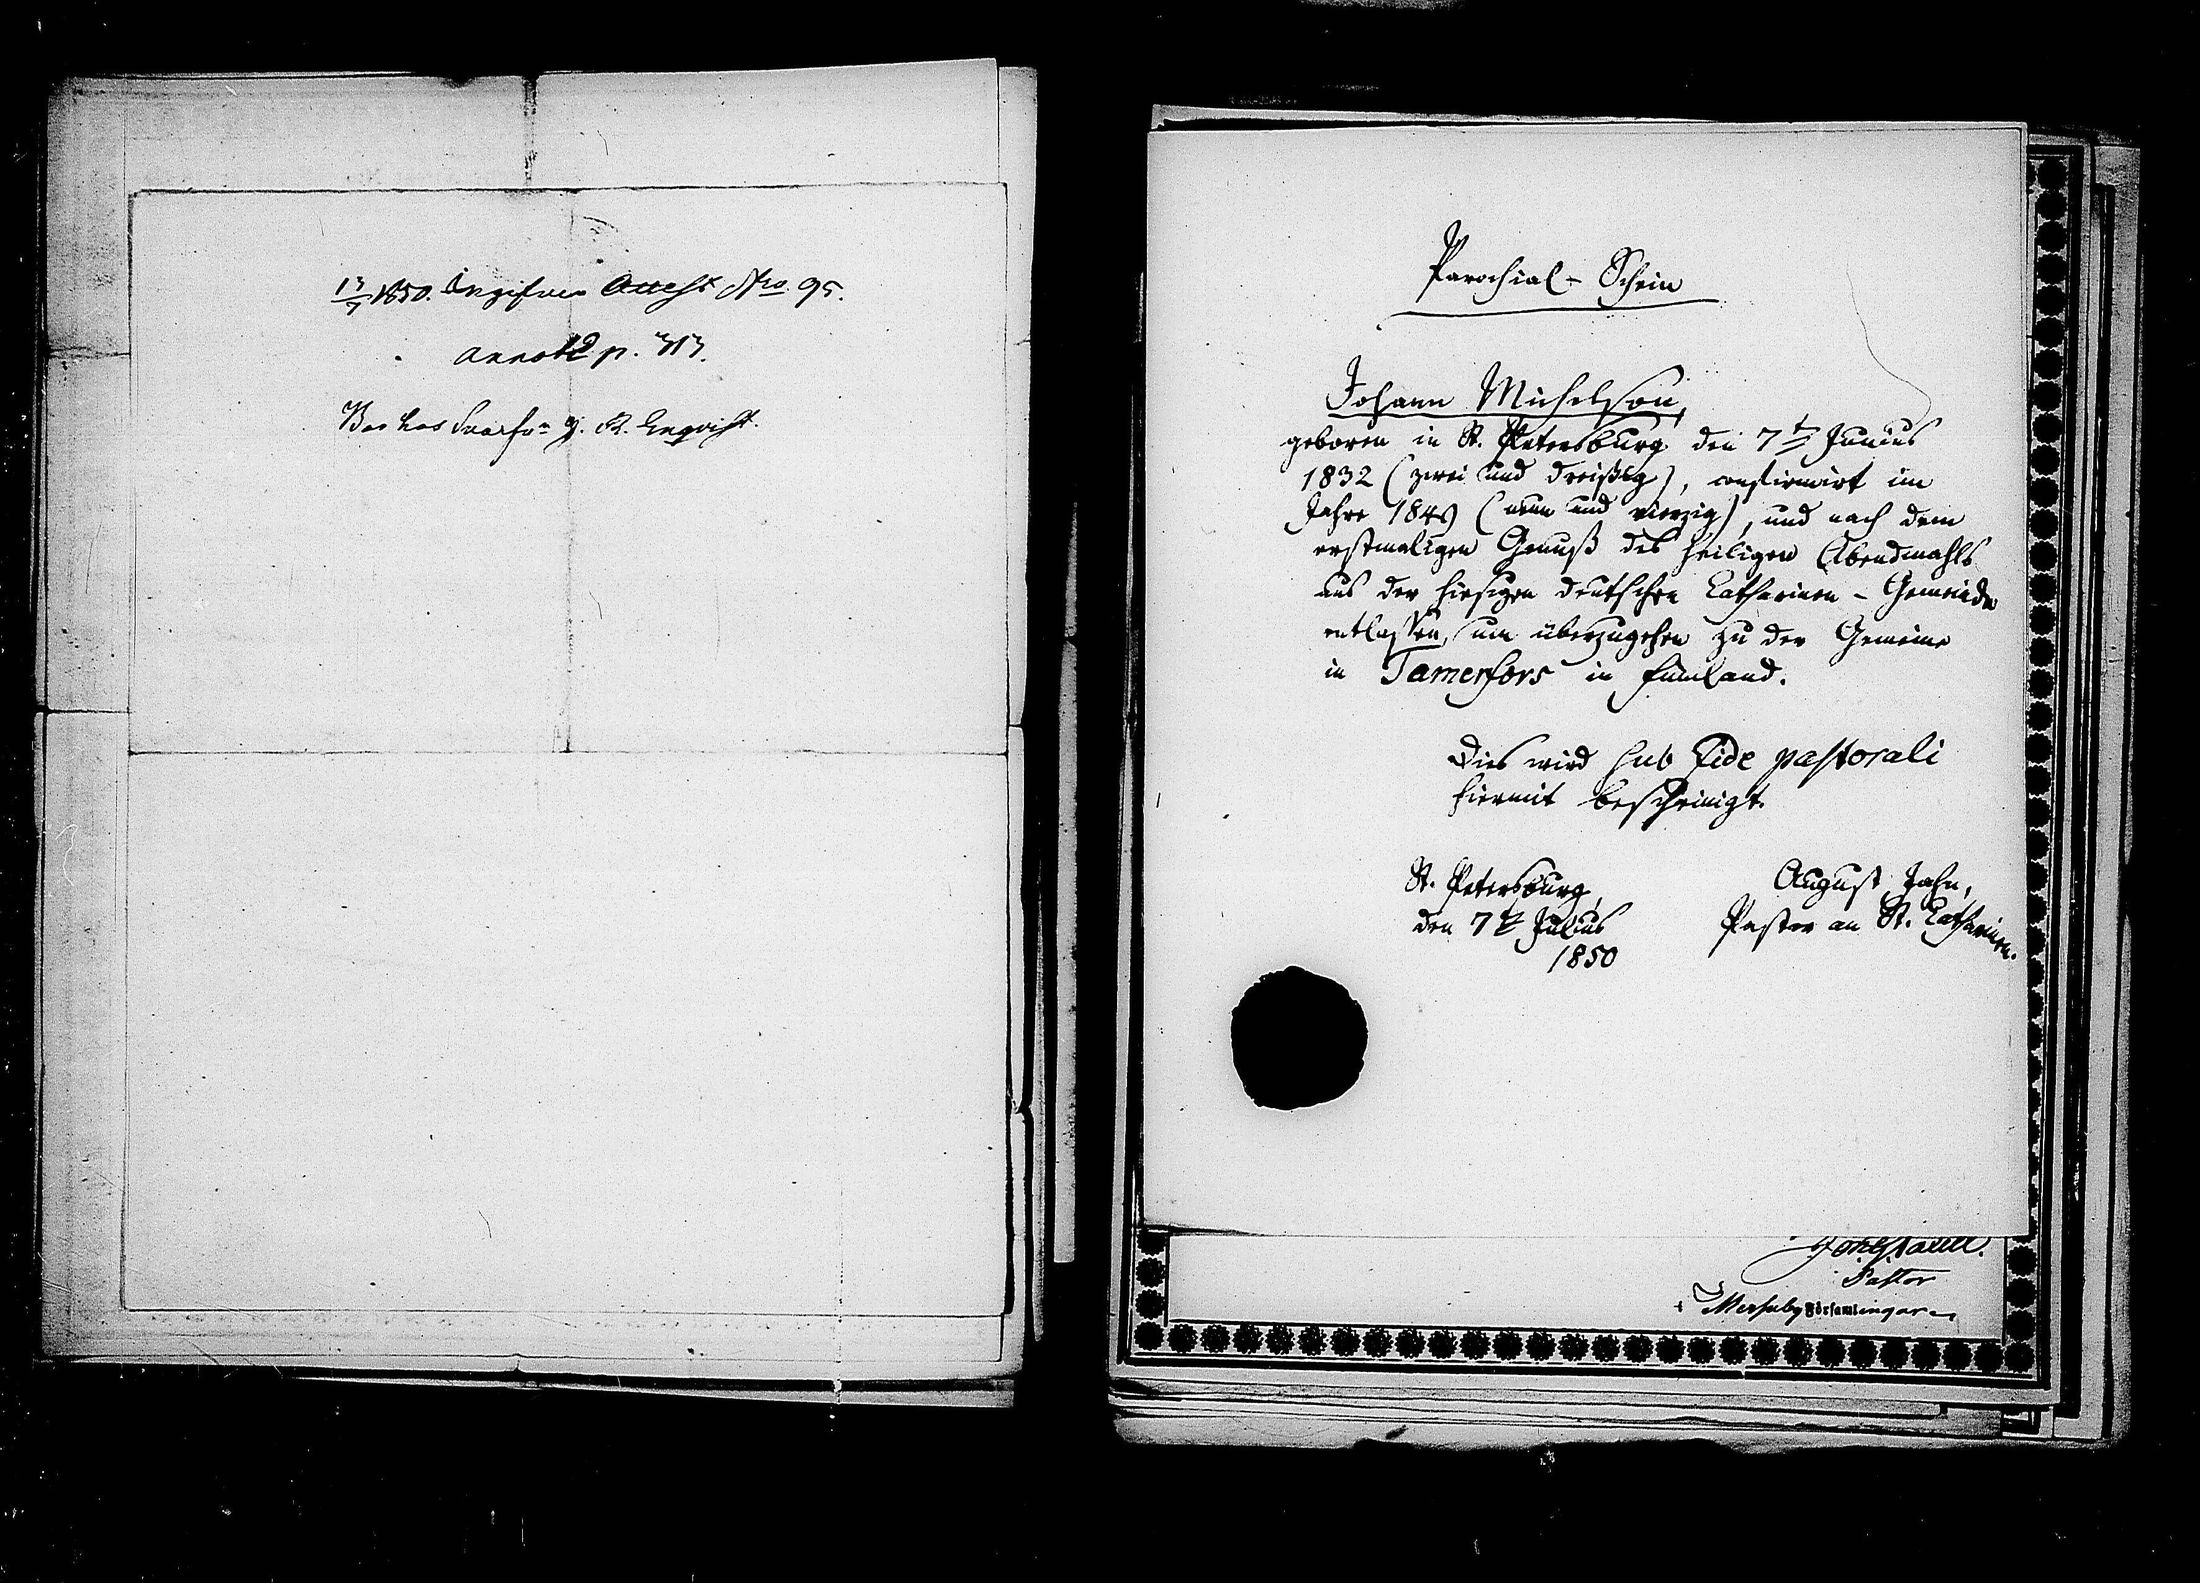 13/7 1850. Ingifven Attest Nro 95.
annot p. 313.
Bor hos Svarfv. G. R. Enqvist.
Parochial-Schein
Johann Michelson,
geboren in St. Petersburg den 7ten Junius
1832 (zwei und dreißig), confirmirt im
Jahre 1849 (neun und vierzig), und nach dem
erstmaligen Genuß des heiligen Abendmahls
aus der hiesigen deutschen Catharinen-Gemeinde
entlassen, um überzugehen zu der Gemeine
in Tamerfors in Finnland.
Dies wird sub fide pastorali
hiermit bescheinigt.
St. Petersburg,
den 7ten Julius
1850
August Jahn,
Pastor an St. Catharinen.
Pastor
Församlingar